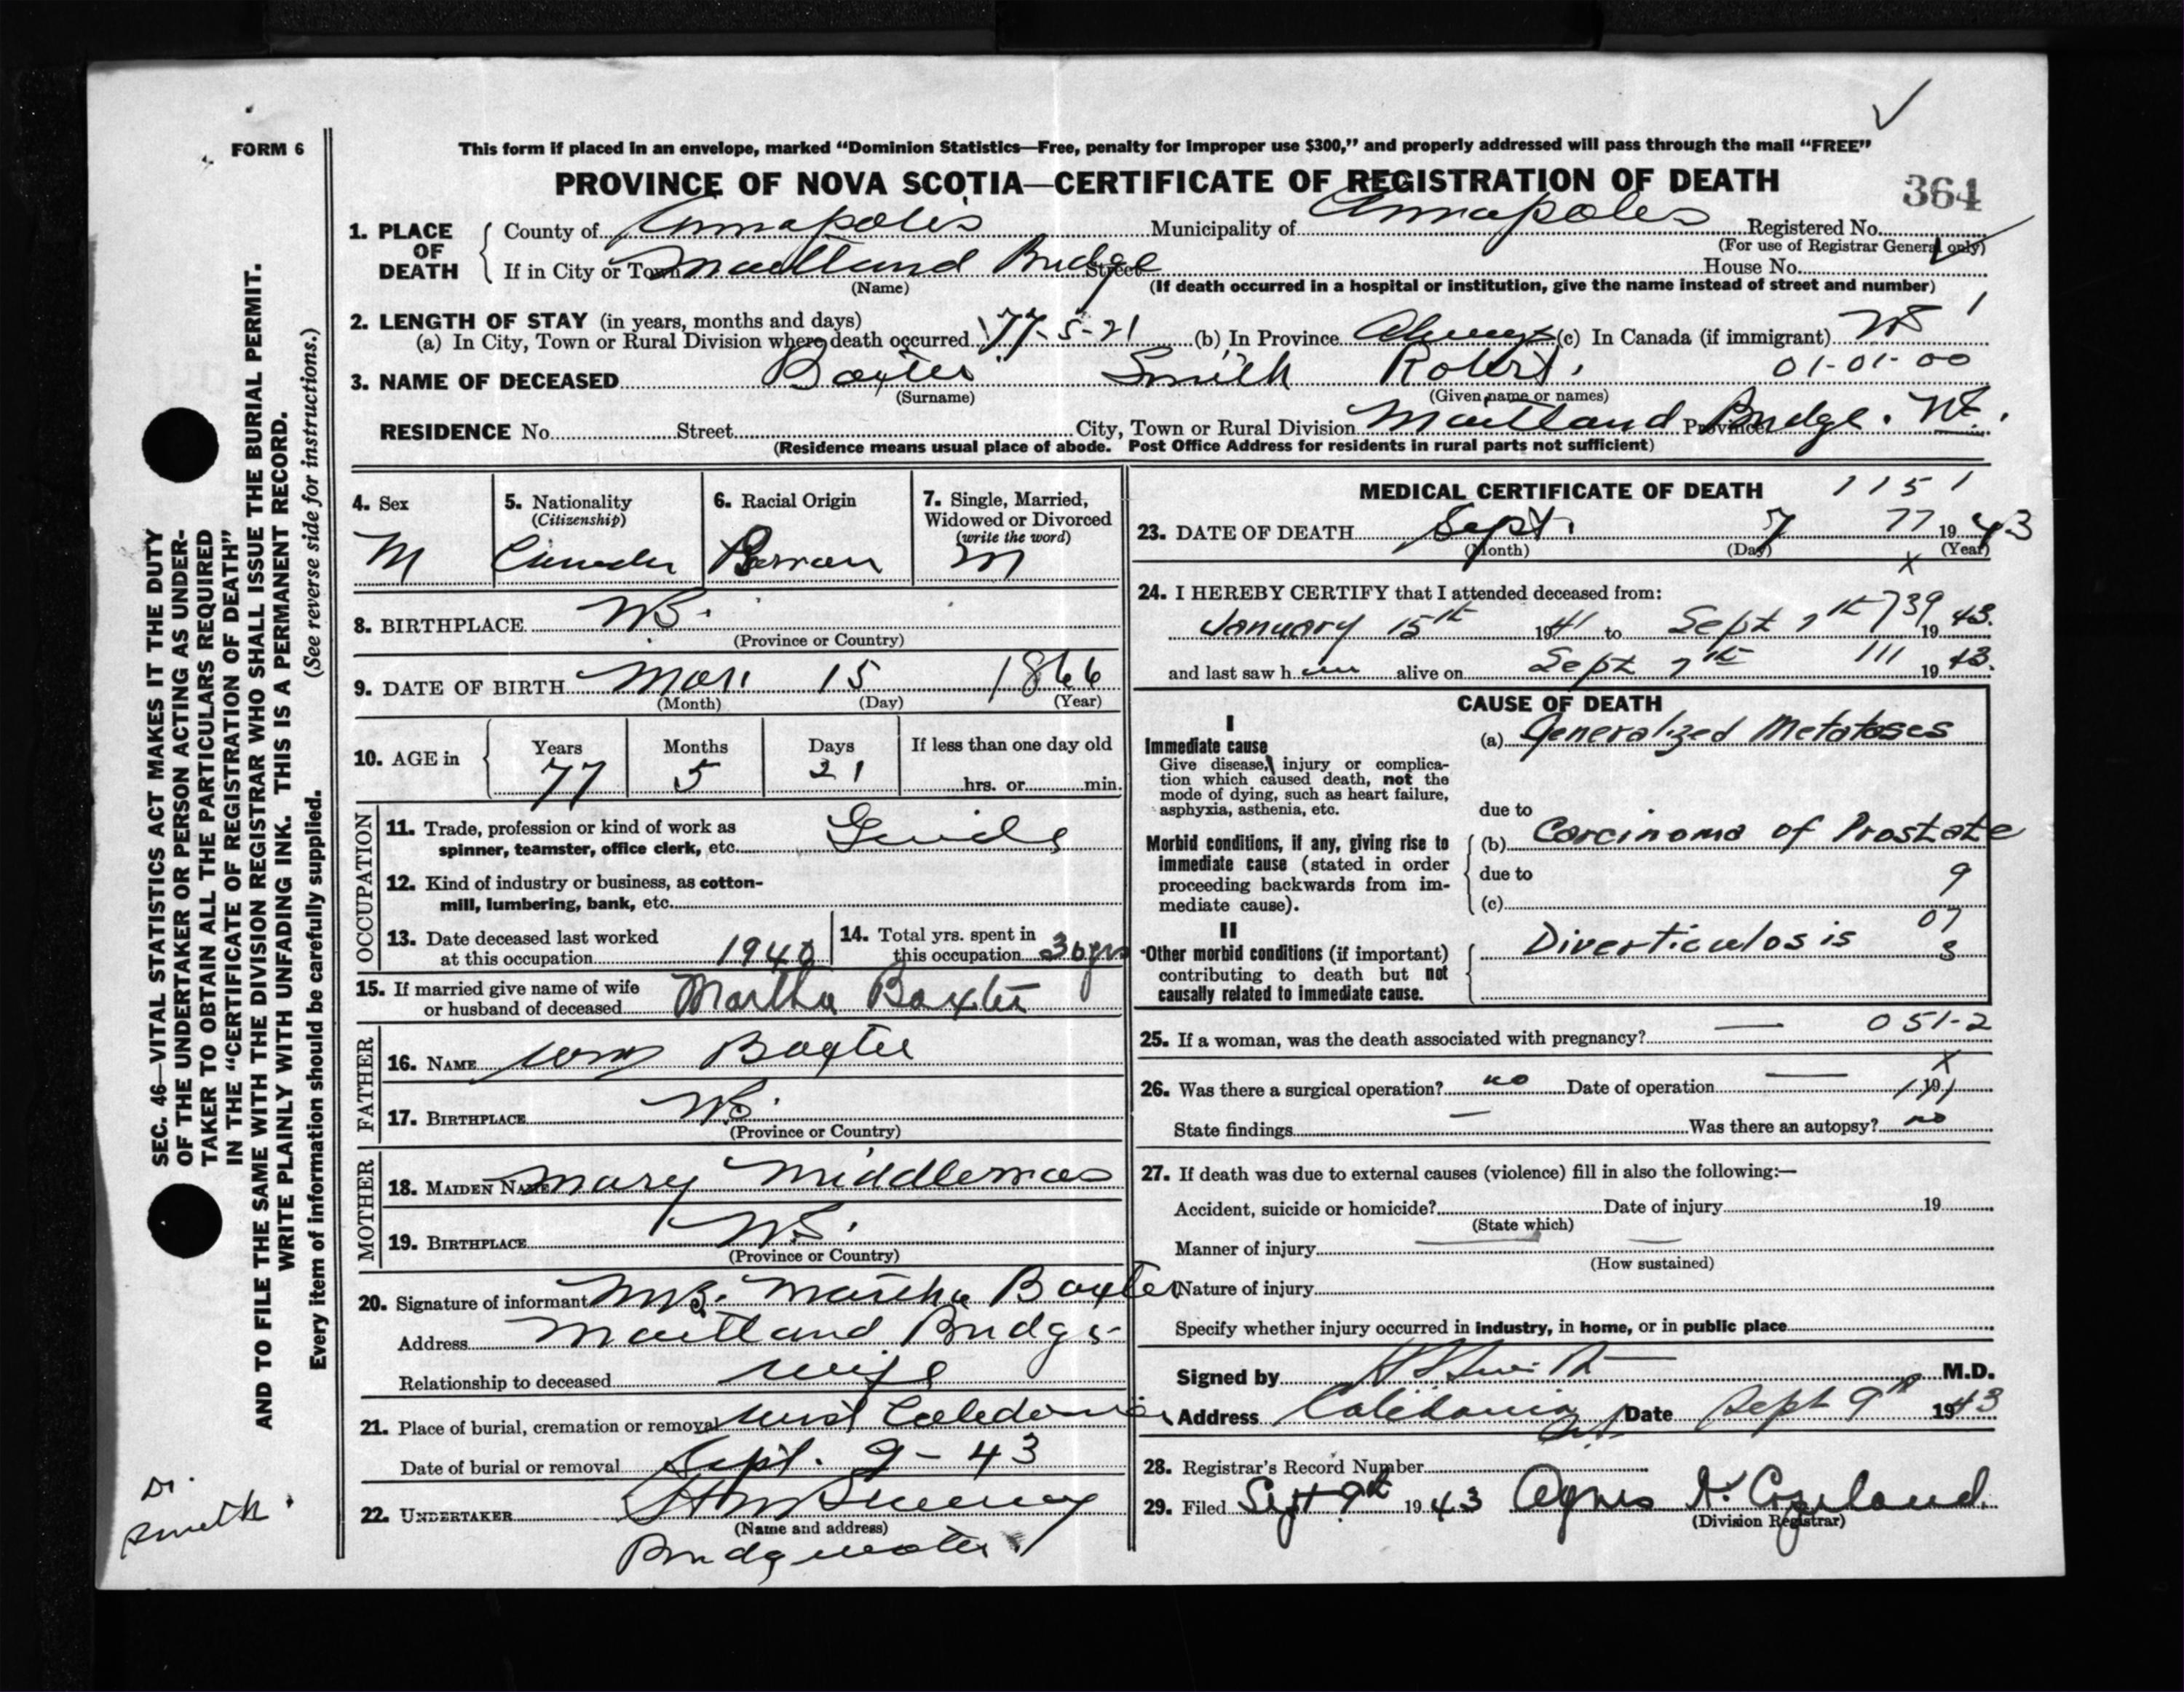 FORM 6
This form if placed in an envelope, marked “Dominion Statistics—Free, penalty for improper use $300,” and properly addressed will pass through the mail “FREE”
PROVINCE OF NOVA SCOTIA—CERTIFICATE OF REGISTRATION OF DEATH
364
1. PLACE OF DEATH
County of Annapolis Municipality of Annapolis Registered No.
(For use of Registrar General only)
If in City or Town Maitland Bridge Street House No.
(Name) (If death occurred in a hospital or institution, give the name instead of street and number)
2. LENGTH OF STAY (in years, months and days)
(a) In City, Town or Rural Division where death occurred 77-5-21 (b) In Province Always (c) In Canada (if immigrant)
01-01-00
3. NAME OF DECEASED Baxter Smith Robert.
(Surname) (Given name or names)
RESIDENCE No. Street City, Town or Rural Division Maitland Bridge. Province
(Residence means usual place of abode. Post Office Address for residents in rural parts not sufficient)
4. Sex
M
5. Nationality
(Citizenship)
6. Racial Origin
7. Single, Married,
Widowed or Divorced
(write the word)
M
8. BIRTHPLACE NS.
(Province or Country)
9. DATE OF BIRTH Mar. 15 1866
(Month) (Day) (Year)
10. AGE in
Years Months Days If less than one day old
77 5 21 hrs. or min.
OCCUPATION
11. Trade, profession or kind of work as
spinner, teamster, office clerk, etc. Guide
12. Kind of industry or business, as cotton-
mill, lumbering, bank, etc.
13. Date deceased last worked
at this occupation 1940
14. Total yrs. spent in
this occupation 30 yrs
15. If married give name of wife
or husband of deceased Martha Baxter
FATHER
16. NAME Wm Baxter
17. BIRTHPLACE NS.
(Province or Country)
MOTHER
18. MAIDEN NAME Mary Middlemas
19. BIRTHPLACE N.S.
(Province or Country)
20. Signature of informant Mrs. Martha Baxter
Address Maitland Bridge
Relationship to deceased wife
21. Place of burial, cremation or removal West Caledonia
Date of burial or removal Sept. 9 - 43
22. UNDERTAKER
(Name and address)
Bridgewater
MEDICAL CERTIFICATE OF DEATH 1151
23. DATE OF DEATH Sept. 7 77 1943
(Month) (Day) (Year)
x
24. I HEREBY CERTIFY that I attended deceased from:
January 15th 1941 to Sept 7th 739 1943.
and last saw him alive on Sept 7th 111 1943.
CAUSE OF DEATH
I
Immediate cause
Give disease, injury or complica-
tion which caused death, not the
mode of dying, such as heart failure,
asphyxia, asthenia, etc.
(a) Generalized Metatases
due to
Morbid conditions, if any, giving rise to
immediate cause (stated in order
proceeding backwards from im-
mediate cause).
(b) Carcinoma of Prostate
due to
9
(c)
07
II
Other morbid conditions (if important)
contributing to death but not
causally related to immediate cause.
Diverticulosis 3
051-2
25. If a woman, was the death associated with pregnancy? —
x
26. Was there a surgical operation? no Date of operation — 19
State findings — Was there an autopsy? no
27. If death was due to external causes (violence) fill in also the following:—
Accident, suicide or homicide? Date of injury 19
(State which)
Manner of injury
(How sustained)
Nature of injury
Specify whether injury occurred in industry, in home, or in public place
Signed by Smith M.D.
Address Caledonia Date Sept 9th 1943
28. Registrar's Record Number
29. Filed Sept 9th 1943 Agnes K. Copeland.
(Division Registrar)
SEC. 46—VITAL STATISTICS ACT MAKES IT THE DUTY
OF THE UNDERTAKER OR PERSON ACTING AS UNDER-
TAKER TO OBTAIN ALL THE PARTICULARS REQUIRED
IN THE “CERTIFICATE OF REGISTRATION OF DEATH”
AND TO FILE THE SAME WITH THE DIVISION REGISTRAR WHO SHALL ISSUE THE BURIAL PERMIT.
WRITE PLAINLY WITH UNFADING INK. THIS IS A PERMANENT RECORD.
Every item of information should be carefully supplied. (See reverse side for instructions.)
Dr.
Smith.